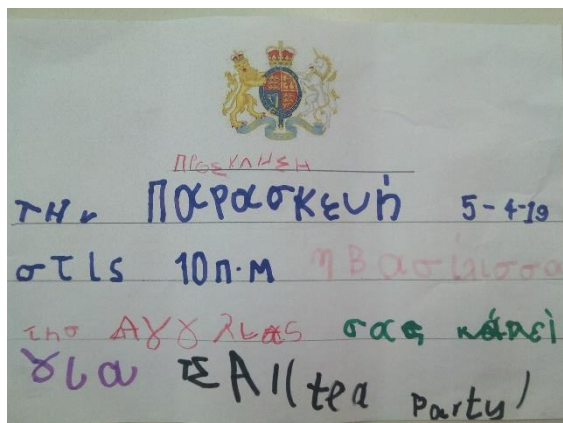 ΠΡΟΣΚΛΗΣΗ
ΤΗν Παρασκευή 5-4-19
στις 10π.μ η Βασίλισσα
της Αγγλίας σας κάνει
για τΣΑΙ (tea party)